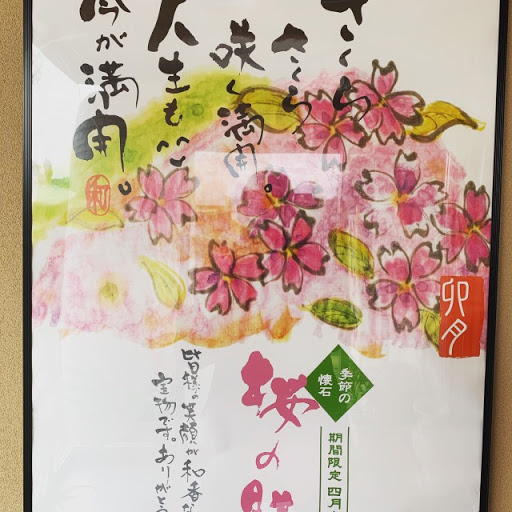 さくら
さくら
咲く満開。
人生も心も
今が満開。
和
卯月
季節の
懐石
期間限定 四月
桜の膳
皆様の笑顔が和香な
宝物です。ありがとう